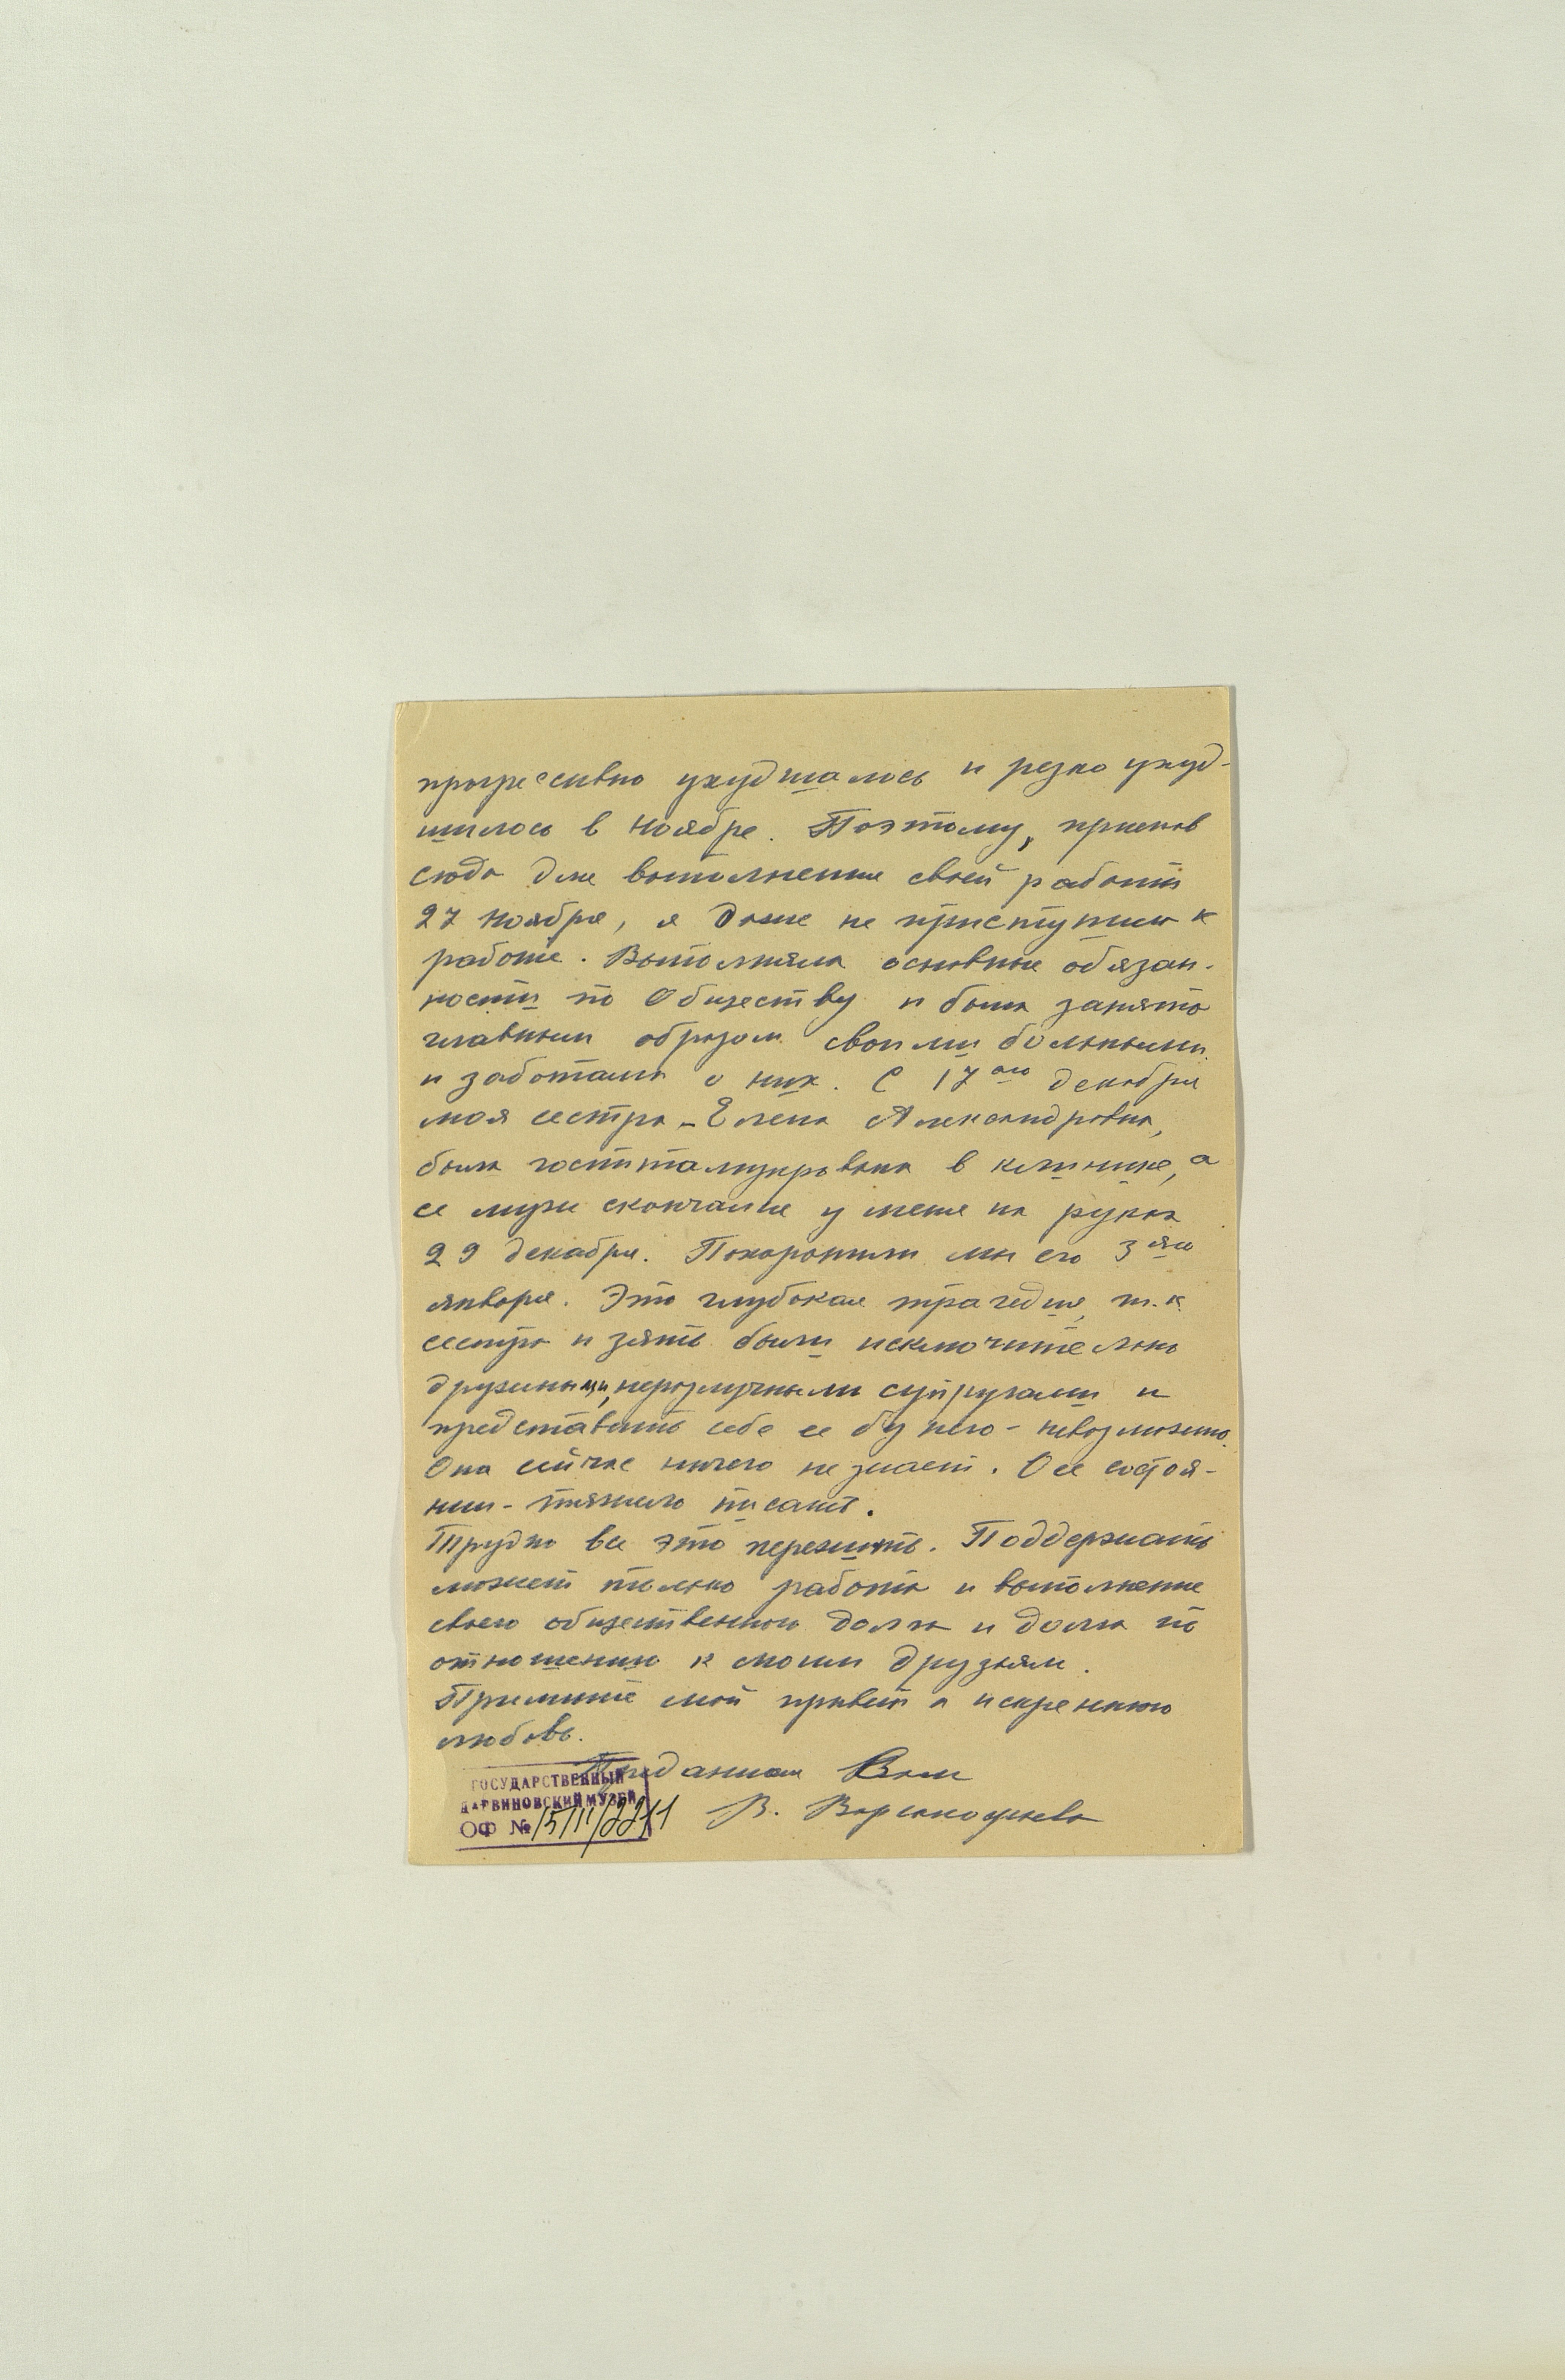 прогрессивно ухудшалось и резко ухуд-
шилось в ноябре. Поэтому, приехав
сюда для выполнения своей работы
27 ноября, я даже не приступила к
работе. Выполняла основные обязан-
ности по Обществу и была занята
главным образом своими больными
и заботами о них. С 17ого декабря
моя сестра - Елена Александровна,
была госпитализирована в клинике, а
ее муж скончался у меня на руках
29 декабря. Похоронили мы его 3яго
января. Это глубокая трагедия, т.к.
сестра и зять были исключительно
дружными, неразлучными супругами и
представить себе ее без него - невозможно.
Она сейчас ничего не знает. О ее состоя-
нии - тяжело писать.
Трудно все это пережить. Поддержать
может только работа и выполнение
своего общественного долга и долга по
отношению к моим друзьям.
Примите мой привет и искреннюю
любовь.
Преданная Вам
В. Варсанофьева
ГОСУДАРСТВЕННЫЙ
ДАРВИНОВСКИЙ МУЗЕЙ
ОФ №